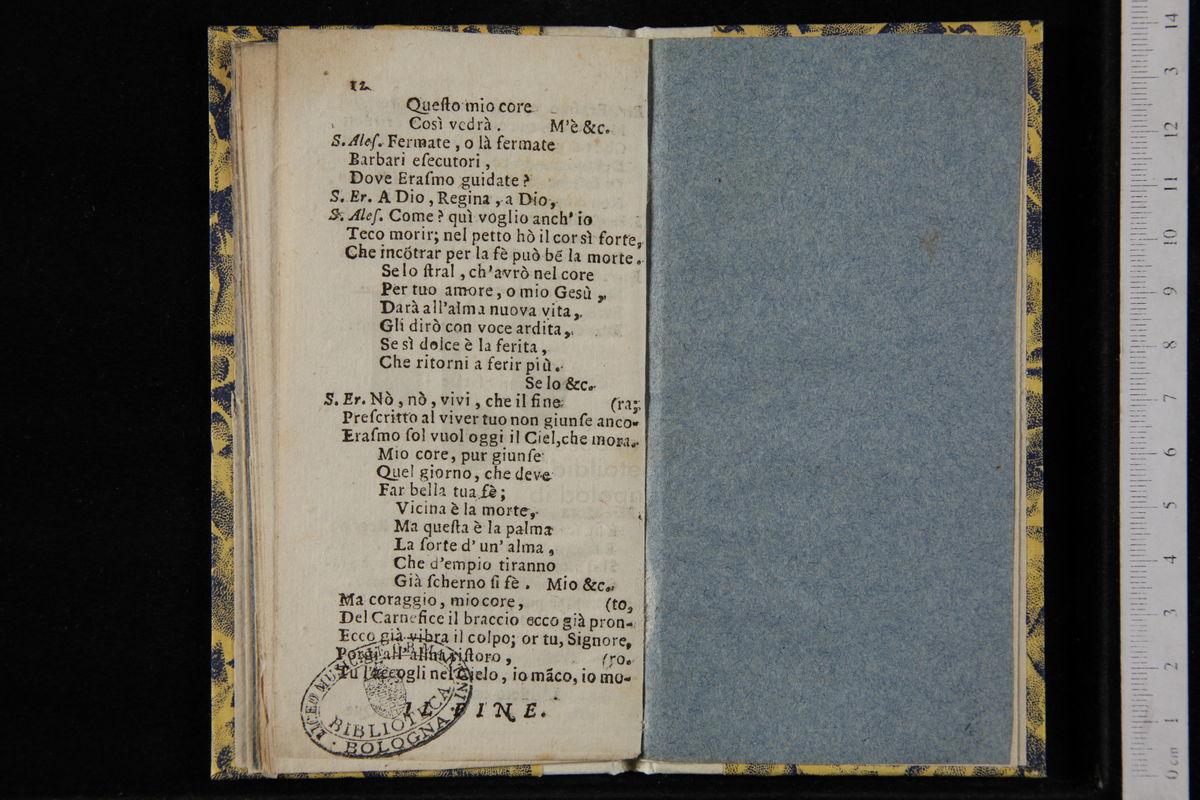 12
Queſto mio core
Così vedrà . M'è &c.
S. Aleſ. Fermate , o là fermate
Barbari eſecutori ,
Dove Eraſmo guidate ?
S. Er. A Dio , Regina , a Dio ,
S. Aleſ. Come ? quì voglio anch' io
Teco morir; nel petto hò il cor sì forte,
Che incõtrar per la fè può bẽ la morte .
Se lo ſtral , ch'avrò nel core
Per tuo amore , o mio Gesù ,
Darà all'alma nuova vita ,
Gli dirò con voce ardita ,
Se sì dolce è la ferita ,
Che ritorni a ferir più .
Se lo &c.
S. Er. Nò , nò , vivi , che il fine (ra;
Preſcritto al viver tuo non giunſe anco-
Eraſmo ſol vuol oggi il Ciel,che mora.
Mio core , pur giunſe
Quel giorno , che deve
Far bella tua fè ;
Vicina è la morte ,
Ma queſta è la palma
La ſorte d' un' alma ,
Che d'empio tiranno
Già ſcherno ſi fè . Mio &c.
Ma coraggio , mio core , (to,
Del Carnefice il braccio ecco già pron-
Ecco già vibra il colpo; or tu, Signore,
Porgi all' alma riſtoro , (ro.
Tu l'accogli nel Cielo , io mãco, io mo-
IL FINE.
LICEO MUSICALE
BIBLIOTECA
BOLOGNA
0 cm 1 2 3 4 5 6 7 8 9 10 11 12 3 14